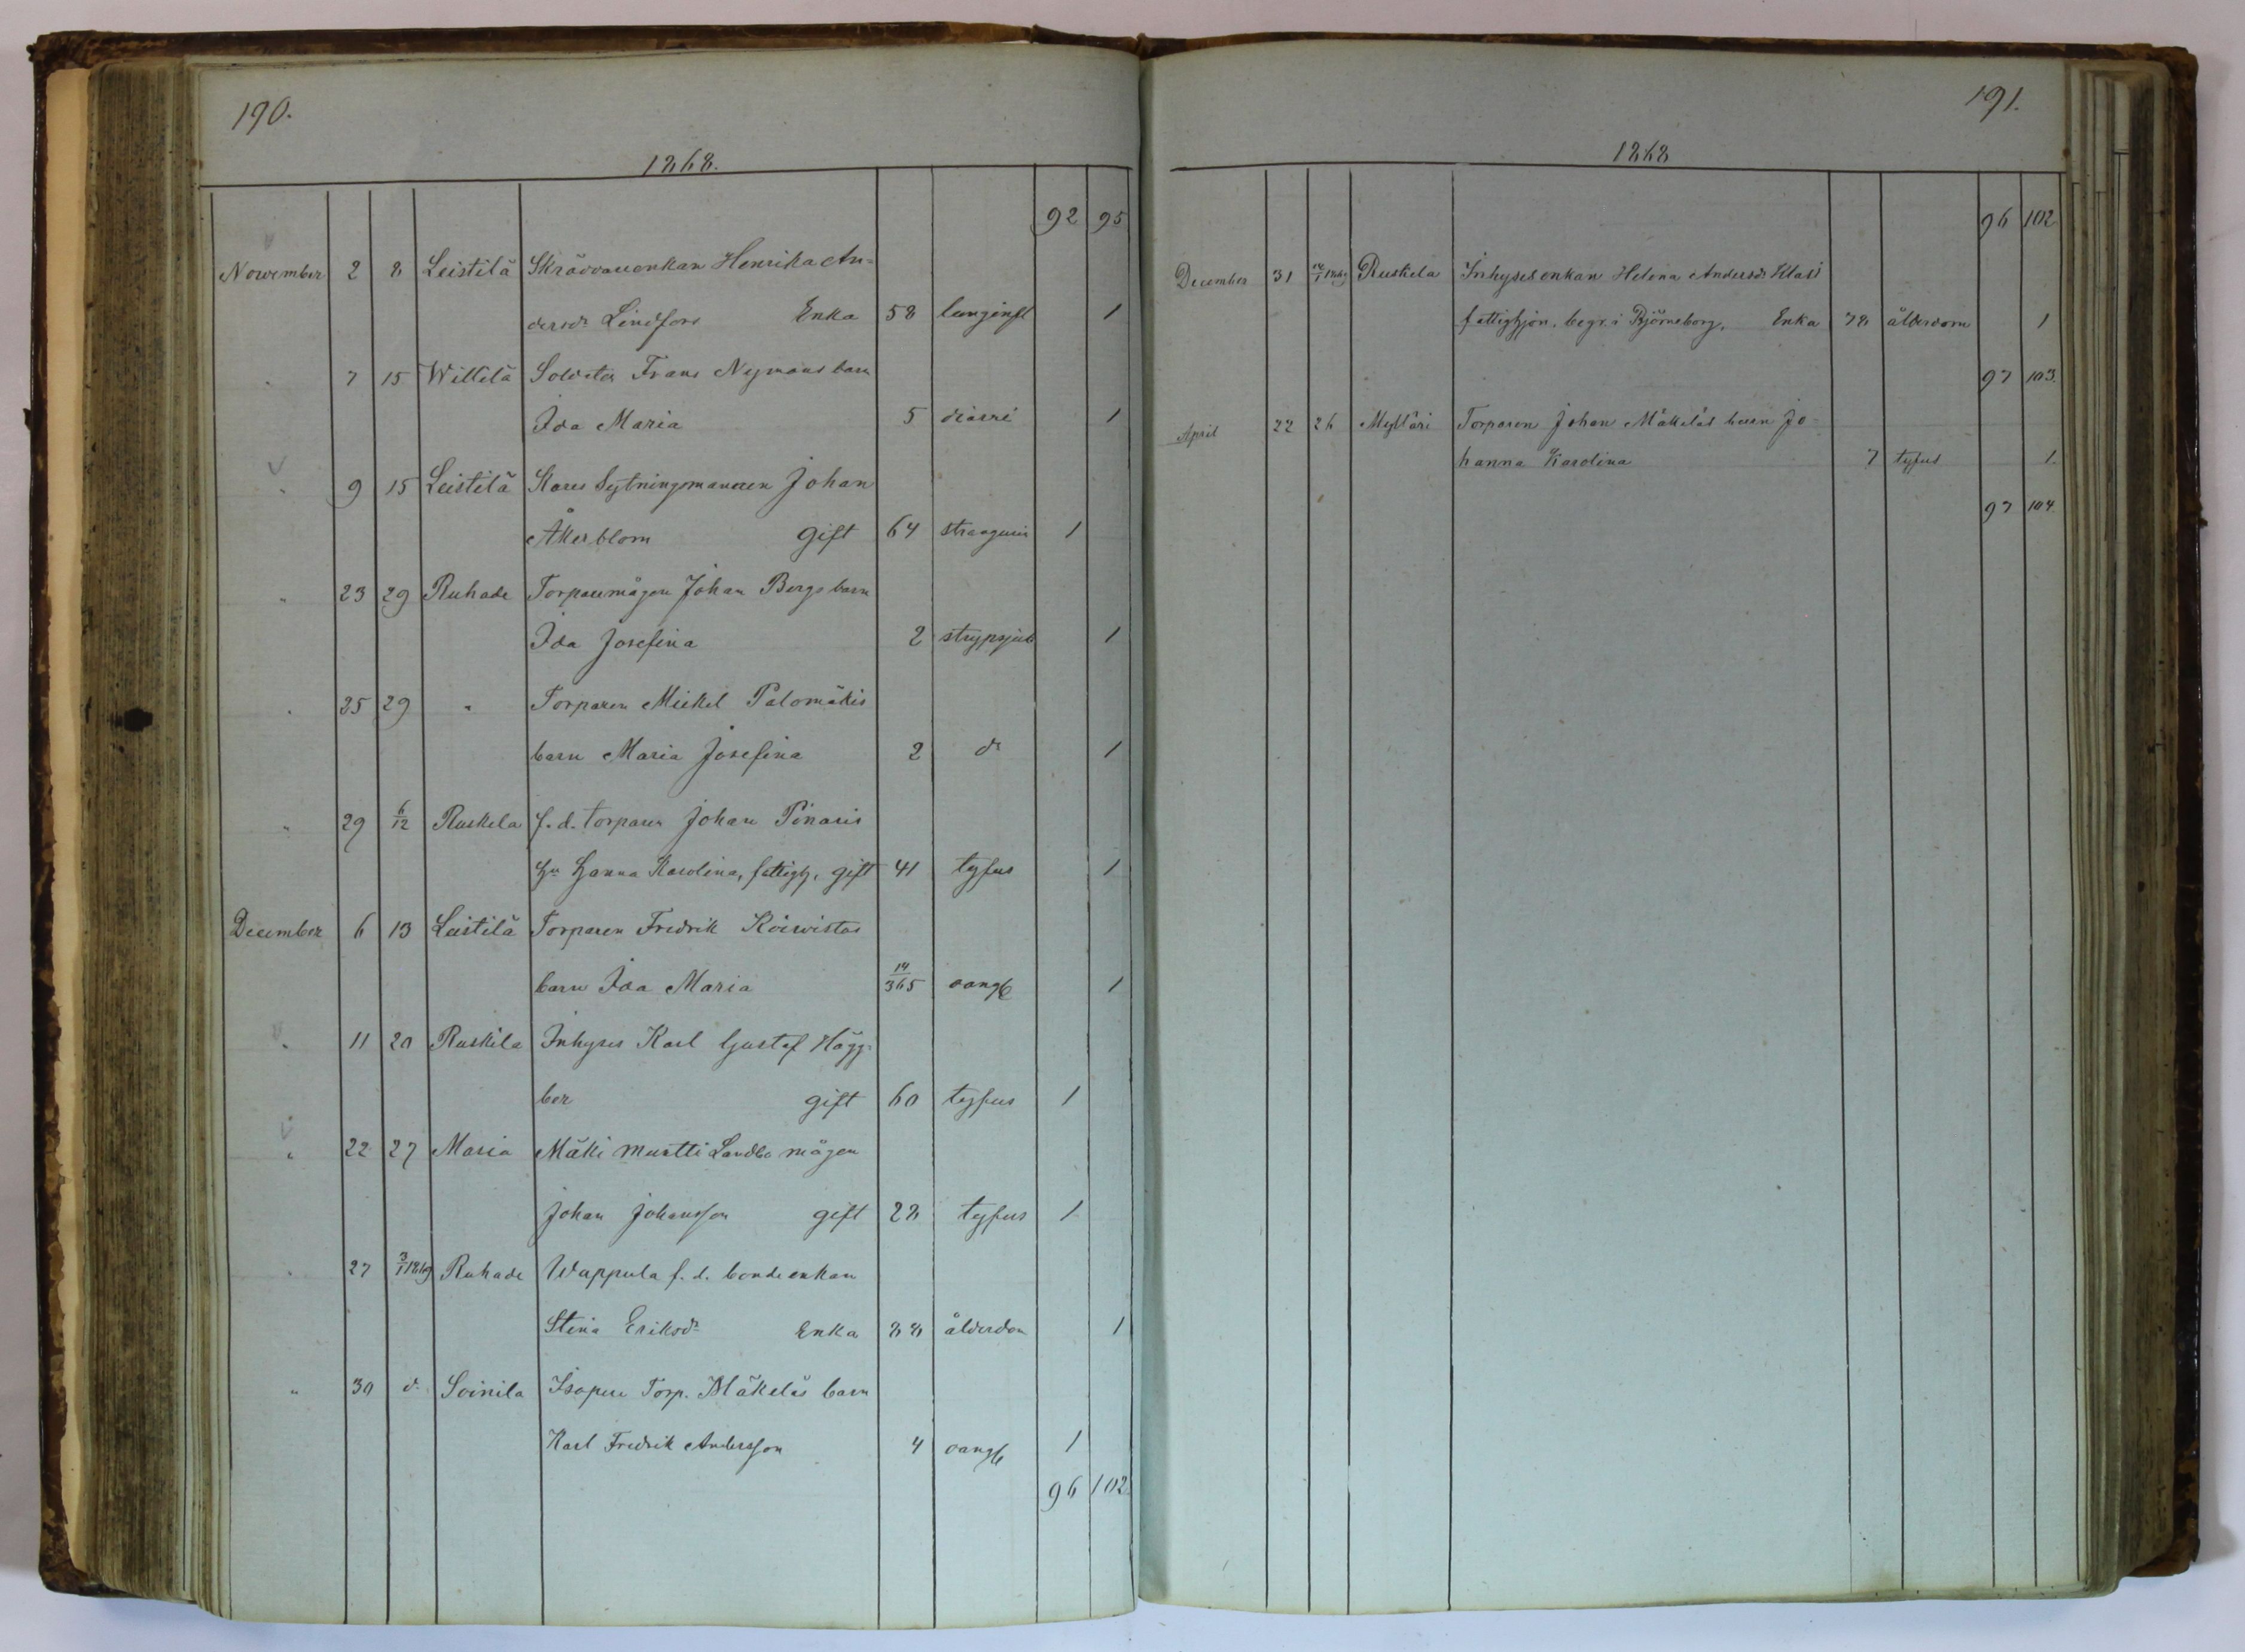 190.
1868.
92 95
November 2 8 Leistilä Skräddareenkan Henrika An-
dersdr Lindfors Enka 58 lunginfl 1
" 7 15 Willilä Soldaten Frans Nymans barn
Ida Maria 5 diarré 1
" 9 15 Leistilä Kares Sytningsmannen Johan
Åkerblom gift 64 stranguri 1
" 23 29 Ruhade Torparemågen Johan Bergs barn
Ida Josefina 2 strypsjuk 1
" 25 29 " Torparen Mickel Palomäkis
barn Maria Josefina 2 do 1
" 29 6/12 Ruskela f. d. torparen Johan Pinaris
hu Hanna Karolina, fattigh. gift 41 tyfus 1
December 6 13 Leistilä Torparen Fredrik Koivistos
barn Ida Maria 14/365 oang 1
" 11 20 Ruskila Inhyses Karl Gustaf Hägg-
ber gift 60 tyfus 1
" 22 27 Maria Mäki Murtti Landbo mågen
Johan Johansson gift 28 tyfus 1
" 27 3/1 1869 Ruhade Wappula f. d. bonde enkan
Stina Eriksdr Enka 88 ålderdom 1
" 30 do Soinila Isopere Torp. Mäkeläs barn
Karl Fredrik Andersson 4 oang 1
96 102.
191.
1868
96 102
December 31 1869 Ruskela Inhyses enkan Helena Andersdr Klasi
fattighjon. begr. i Björneborg, Enka 78 ålderdom 1
97 103.
April 22 26 Mylläri Torparen Johan Mäkeläs barn Jo-
hanna Karolina 7 tyfus 1.
97 104.